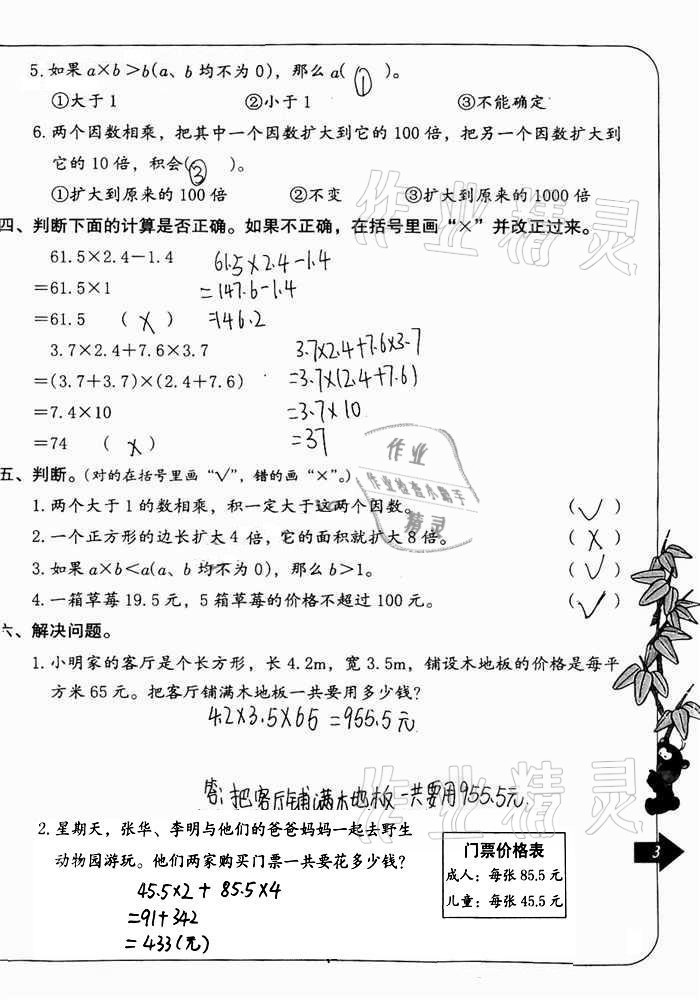 5. 如果 a×b>b(a、b 均不为 0)，那么 a( ① )。
①大于 1 ②小于 1 ③不能确定
6. 两个因数相乘，把其中一个因数扩大到它的 100 倍，把另一个因数扩大到
它的 10 倍，积会( ③ )。
①扩大到原来的 100 倍 ②不变 ③扩大到原来的 1000 倍
四、判断下面的计算是否正确。如果不正确，在括号里画“×”并改正过来。
61.5×2.4-1.4 61.5×2.4-1.4
=61.5×1 =147.6-1.4
=61.5 ( × ) =146.2
3.7×2.4+7.6×3.7 3.7×2.4+7.6×3.7
=(3.7+3.7)×(2.4+7.6) =3.7×(2.4+7.6)
=7.4×10 =3.7×10
=74 ( × ) =37
五、判断。(对的在括号里画“√”，错的画“×”。)
1. 两个大于 1 的数相乘，积一定大于这两个因数。 ( √ )
2. 一个正方形的边长扩大 4 倍，它的面积就扩大 8 倍。 ( × )
3. 如果 a×b<a(a、b 均不为 0)，那么 b>1。 ( √ )
4. 一箱草莓 19.5 元，5 箱草莓的价格不超过 100 元。 ( √ )
六、解决问题。
1. 小明家的客厅是个长方形，长 4.2m，宽 3.5m，铺设木地板的价格是每平
方米 65 元。把客厅铺满木地板一共要用多少钱？
4.2×3.5×65=955.5元
答：把客厅铺满木地板一共要用955.5元
2. 星期天，张华、李明与他们的爸爸妈妈一起去野生
动物园游玩。他们两家购买门票一共要花多少钱？
45.5×2+85.5×4
=91+342
=433(元)
门票价格表
成人：每张 85.5 元
儿童：每张 45.5 元
3
作业精灵
作业
作业检查小助手
精灵
作业精灵